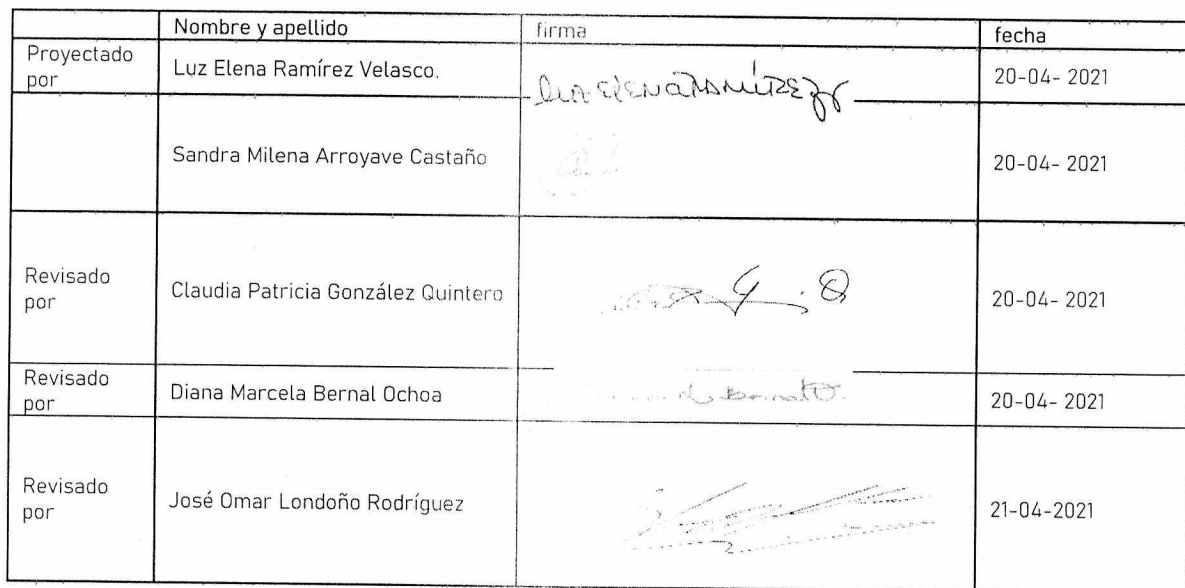 Nombre y apellido firma fecha
Proyectado por Luz Elena Ramírez Velasco. Luz ELENA RAMÍREZ 20-04- 2021
Sandra Milena Arroyave Castaño 20-04- 2021
Revisado por Claudia Patricia González Quintero 20-04- 2021
Revisado por Diana Marcela Bernal Ochoa 20-04- 2021
Revisado por José Omar Londoño Rodríguez 21-04-2021